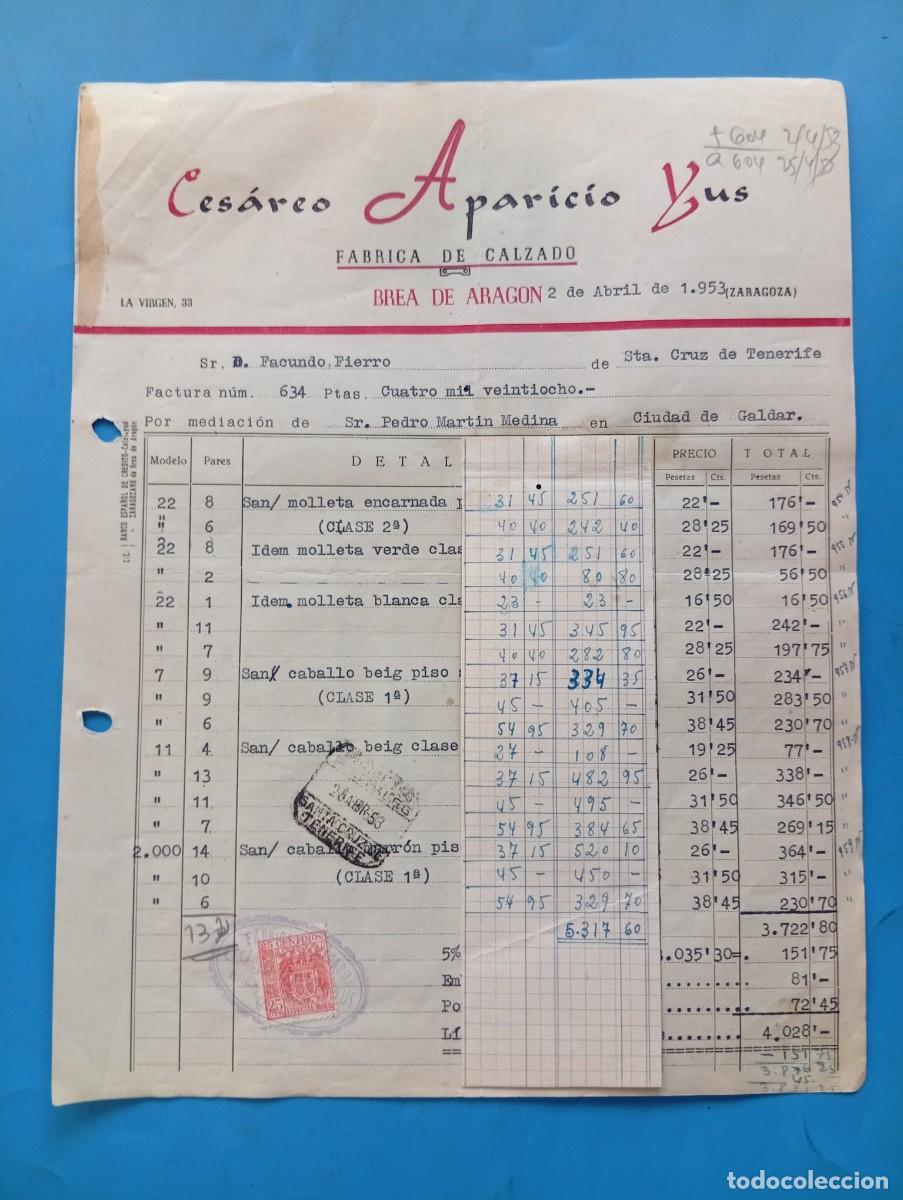 + 604 2/4/53
a 604 25/4/53
Cesáreo Aparicio Yus
FABRICA DE CALZADO
LA VIRGEN, 33 BREA DE ARAGON 2 de Abril de 1.953 (ZARAGOZA)
Sr. D. Facundo, Fierro de Sta. Cruz de Tenerife
Factura núm. 634 Ptas. Cuatro mil veintiocho.-
Por mediación de Sr. Pedro Martin Medina en Ciudad de Galdar.
C/C. BANCO ESPAÑOL DE CREDITO
ZARAGOZANO de Brea de Aragón
Modelo Pares DETAL PRECIO TOTAL
Pesetas Cts. Pesetas Cts.
22 8 San/ molleta encarnada p 31 45 251 60 22'- 176'- 954
" 6 (CLASE 2ª) 40 40 242 40 28'25 169'50 "
22 8 Idem molleta verde clas 31 45 251 60 22'- 176'- 955
" 2 40 40 80 80 28'25 56'50 "
22 1 Idem. molleta blanca cla 23 - 23 - 16'50 16'50 956
" 11 31 45 345 95 22'- 242'- "
" 7 40 40 282 80 28'25 197'75 "
7 9 San/ caballo beig piso 37 15 334 35 26'- 234'- 957
" 9 (CLASE 1ª) 45 - 405 - 31'50 283'50 "
" 6 54 95 329 70 38'45 230'70 "
11 4 San/ caballo beig clase 27 - 108 - 19'25 77'- 958
" 13 37 15 482 95 26'- 338'- "
" 11 45 - 495 - 31'50 346'50 "
" 7 54 95 384 65 38'45 269'15 "
2.000 14 San/ caballo marrón pis 37 15 520 10 26'- 364'- 959
" 10 (CLASE 1ª) 45 - 450 - 31'50 315'- "
" 6 54 95 329 70 38'45 230'70 "
132 5.317 60 3.722'80
5% .035'30=. 151'75
Em ......... 81'-
Po ......... 72'45
Lí ......... 4.028'-
- 151 75
3.876 25
45.
26 ABR 53
SANTA CRUZ DE
TENERIFE
25 CENTIMOS
25
todocoleccion